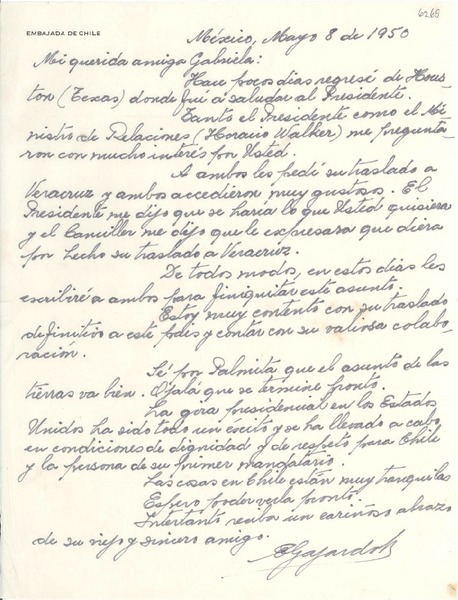 6268
EMBAJADA DE CHILE
México, Mayo 8 de 1950
Mi querida amiga Gabriela:
Hace pocos días regresé de Hous-
ton (Texas) donde fuí a saludar al Presidente.
Tanto el Presidente como el Mi-
nistro de Relaciones (Horacio Walker) me pregunta-
ron con mucho interés por Usted.
A ambos les pedí su traslado a
Veracruz y ambos accedieron muy gustosos. El
Presidente me dijo que se haría lo que Usted quisiera
y el Canciller me dijo que le expresara que diera
por hecho su traslado a Veracruz.
De todos modos, en estos días les
escribiré a ambos para finiquitar este asunto.
Estoy muy contento con su traslado
definitivo a este país y contar con su valiosa colabo-
ración.
Sé por Palmita que el asunto de las
tierras va bien. Ojalá que se termine pronto.
La gira presidencial en los Estados
Unidos ha sido todo un éxito y se ha llevado a cabo
en condiciones de dignidad y de respeto para Chile
y la persona de su primer mandatario.
Las cosas en Chile están muy tranquilas
Espero poder verla pronto.
Intertanto reciba un cariñoso abrazo
de su viejo y sincero amigo.
EGajardo